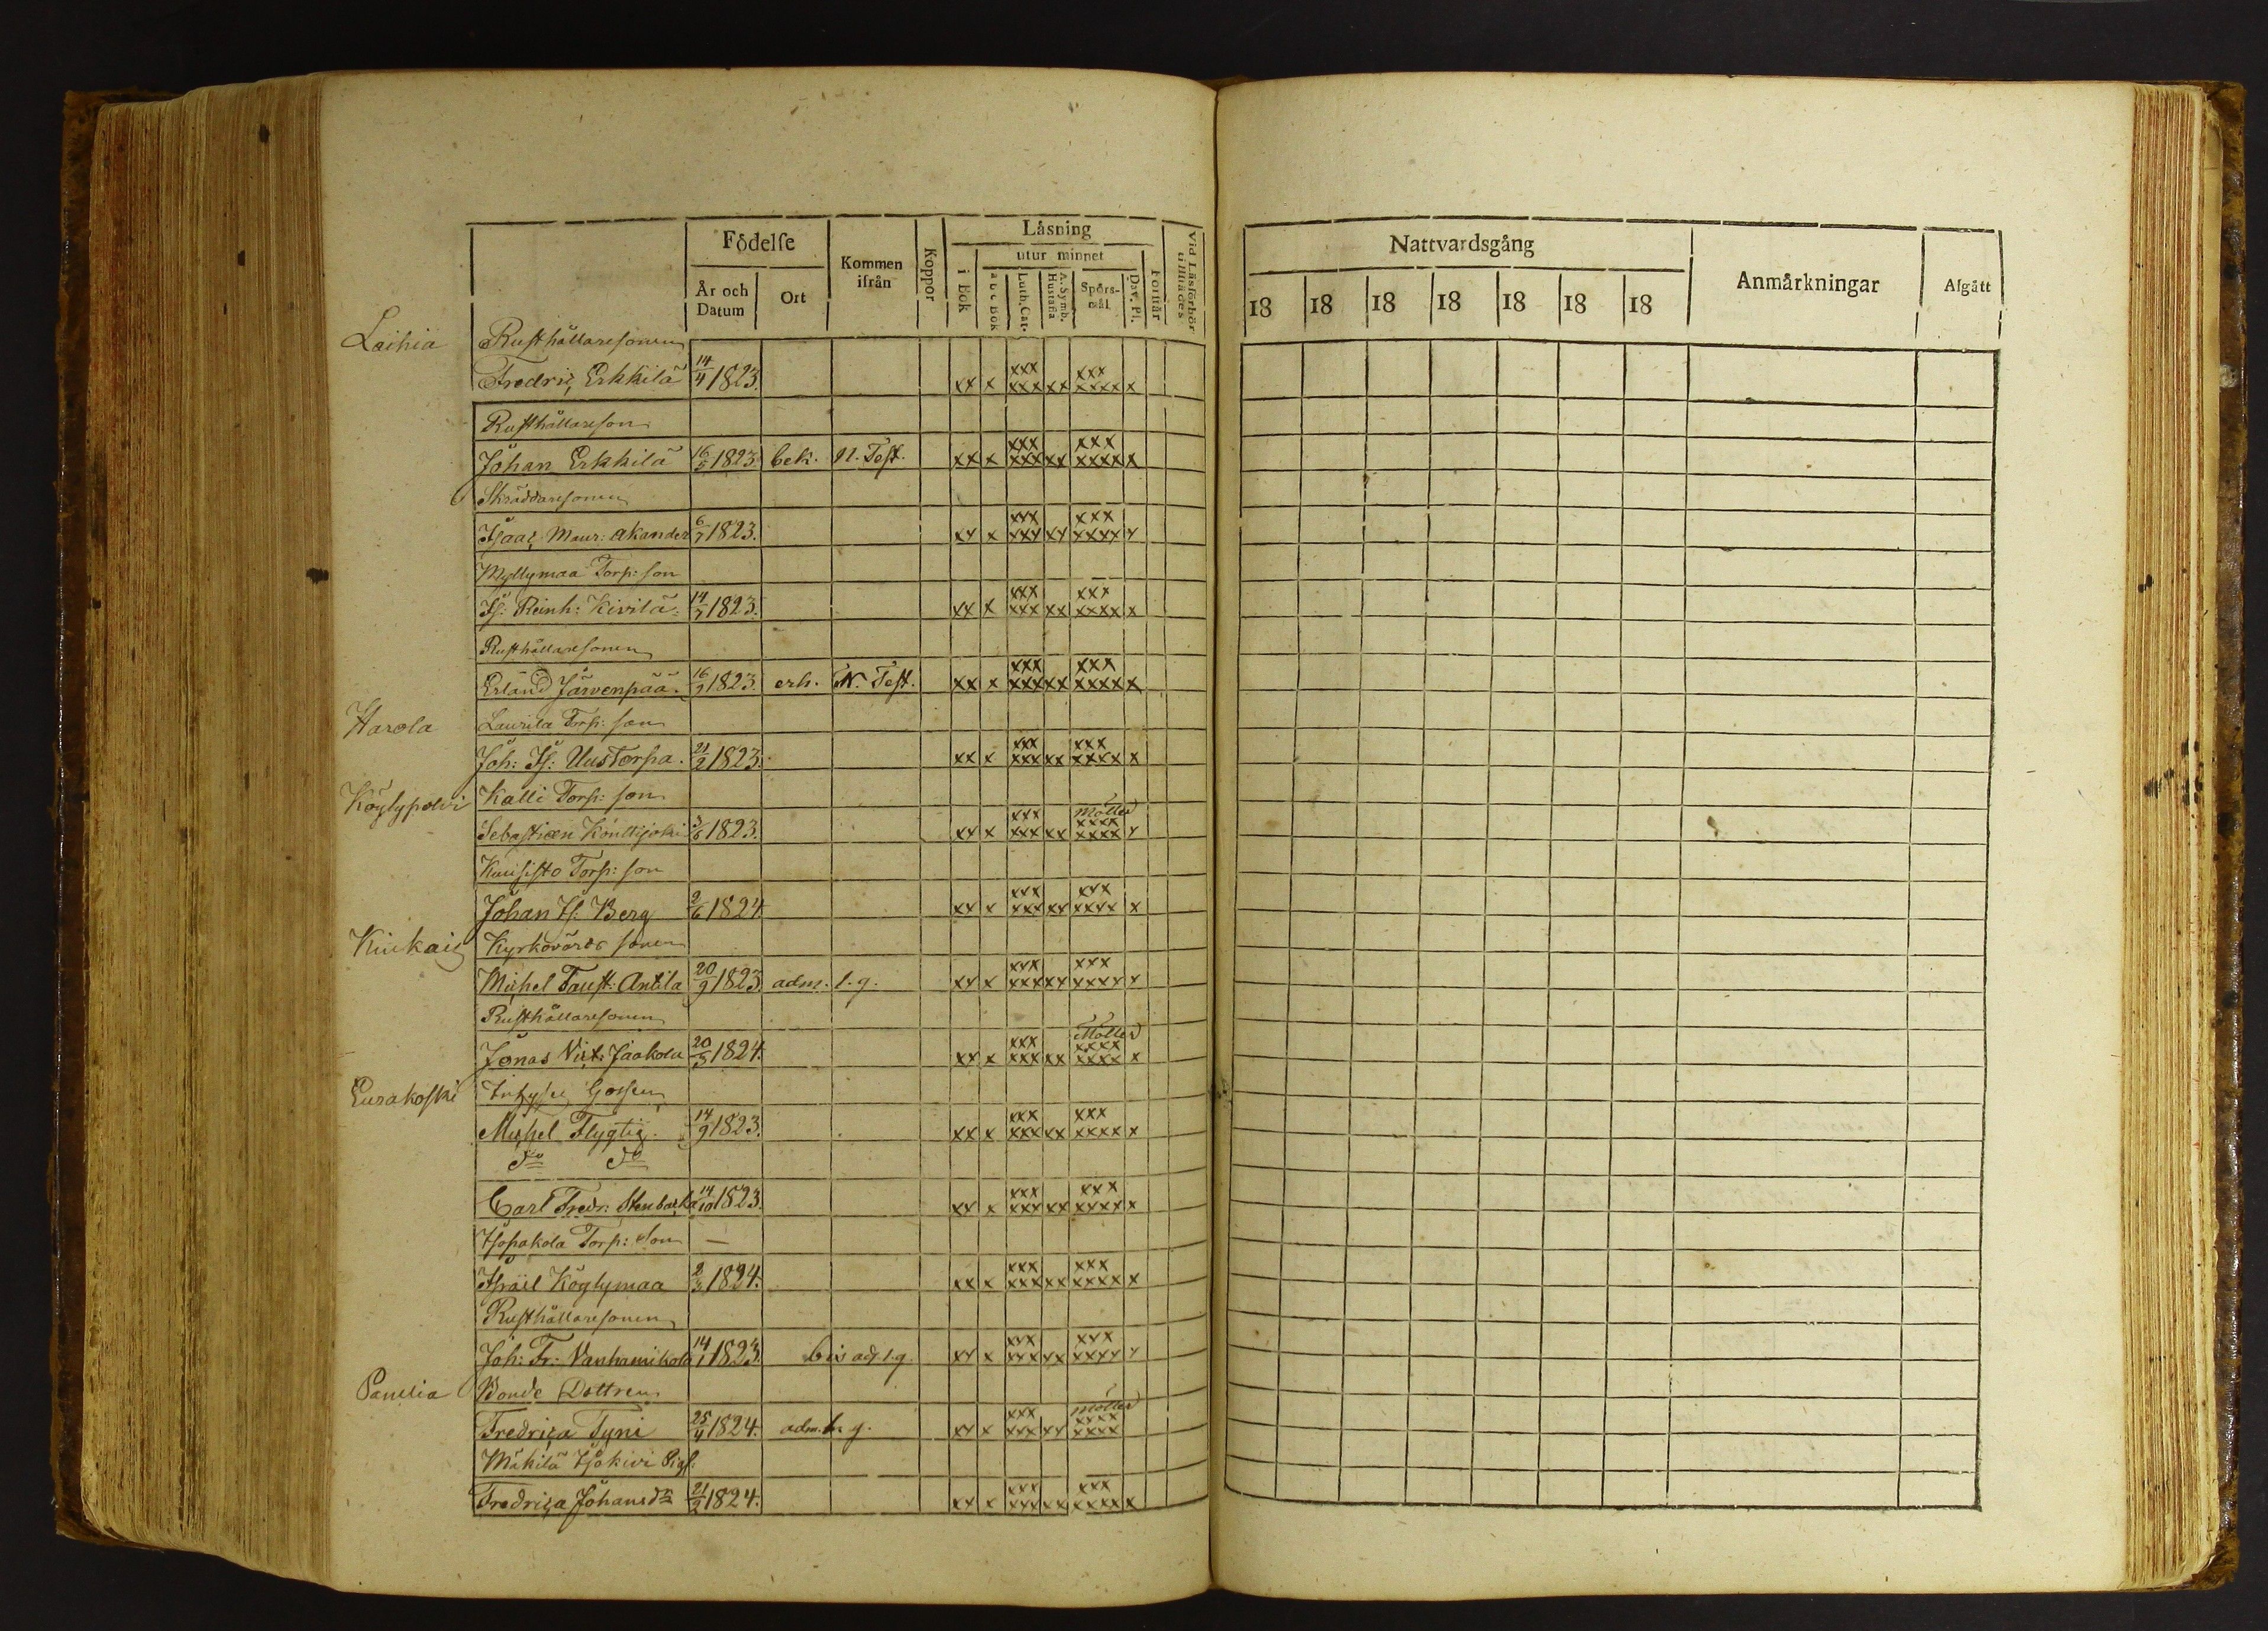 Födelse
Kommen ifrån
Koppor
Läsning
utur minnet
År och Datum
Ort
i Bok
a b c Bok
Luth. Cat.
A. Symb. Hustafla
Spörs-mål
Dav. Ps.
Förstår
Vid Läsförhör tillstädes
Nattvardsgång
Anmärkningar
Afgått
18 18 18 18 18 18 18
Laihia Rusthållaresonen
Fredric Erkkilä 14/4 1823. xx x xxx xxx xx xxx xxxx x
Rusthållareson
Johan Erkkilä 16/5 1823. bek. N. Test. xx x xxx xxx xx xxx xxxx x
Skräddaresonen
Isaac Maur: Akander 6/7 1823. xx x xxx xxx xx xxx xxxx x
Myllymaa Torp: son
Is: Reinh: Kivilä 14/7 1823. xx x xxx xxx xx xxx xxxx x
Rusthållaresonen
Erland Järvenpää 16/9 1823. erh. N. Test. xx x xxx xxx xx xxx xxxx x
Harola Laurila Torp: son
Joh: Is: Uustorpa. 21/2 1823. xx x xxx xxx xx xxx xxxx x
Köylypolvi Kalli Torp: son
Sebastian Könttijoki 3/6 1823. xx x xxx xxx xx Möller xxxx xxxx x
Kuusisto Torp: son
Johan Is: Berg 2/6 1824 xx x xxx xxx xx xxx xxxx x
Kiukais Kyrkovärds sonen
Michel Faust: Antila 20/9 1823. adm. l. g. xx x xxx xxx xx xxx xxxx x
Rusthållaresonen
Jonas Vict: Jaakola 20/3 1824. xx x xxx xxx xx Möller xxxx xxxx x
Eurakoski Inhyses Gossen
Michel Flygtig. 14/9 1823. xx x xxx xxx xx xxx xxxx x
do do
Carl Fredr: Stenbacka 14/10 1823. xx x xxx xxx xx xxx xxxx x
Torp: Son —
Israel Köylymaa 2/3 1824. xx x xxx xxx xx xxx xxxx x
Rusthållaresonen
Joh: Fr: Vanhamikola 14/1 1823. bis ad. l. g. xx x xxx xxx xx xxx xxxx x
Panelia Bonde Dottren
Fredrica Tyni 25/4 1824. adm. l. g. xx x xxx xxx xx möller xxxx xxxx
Mäkilä Isokivi Pigs:
Fredrica Johansdr 21/2 1824. xx x xxx xxx xx xxx xxxx x